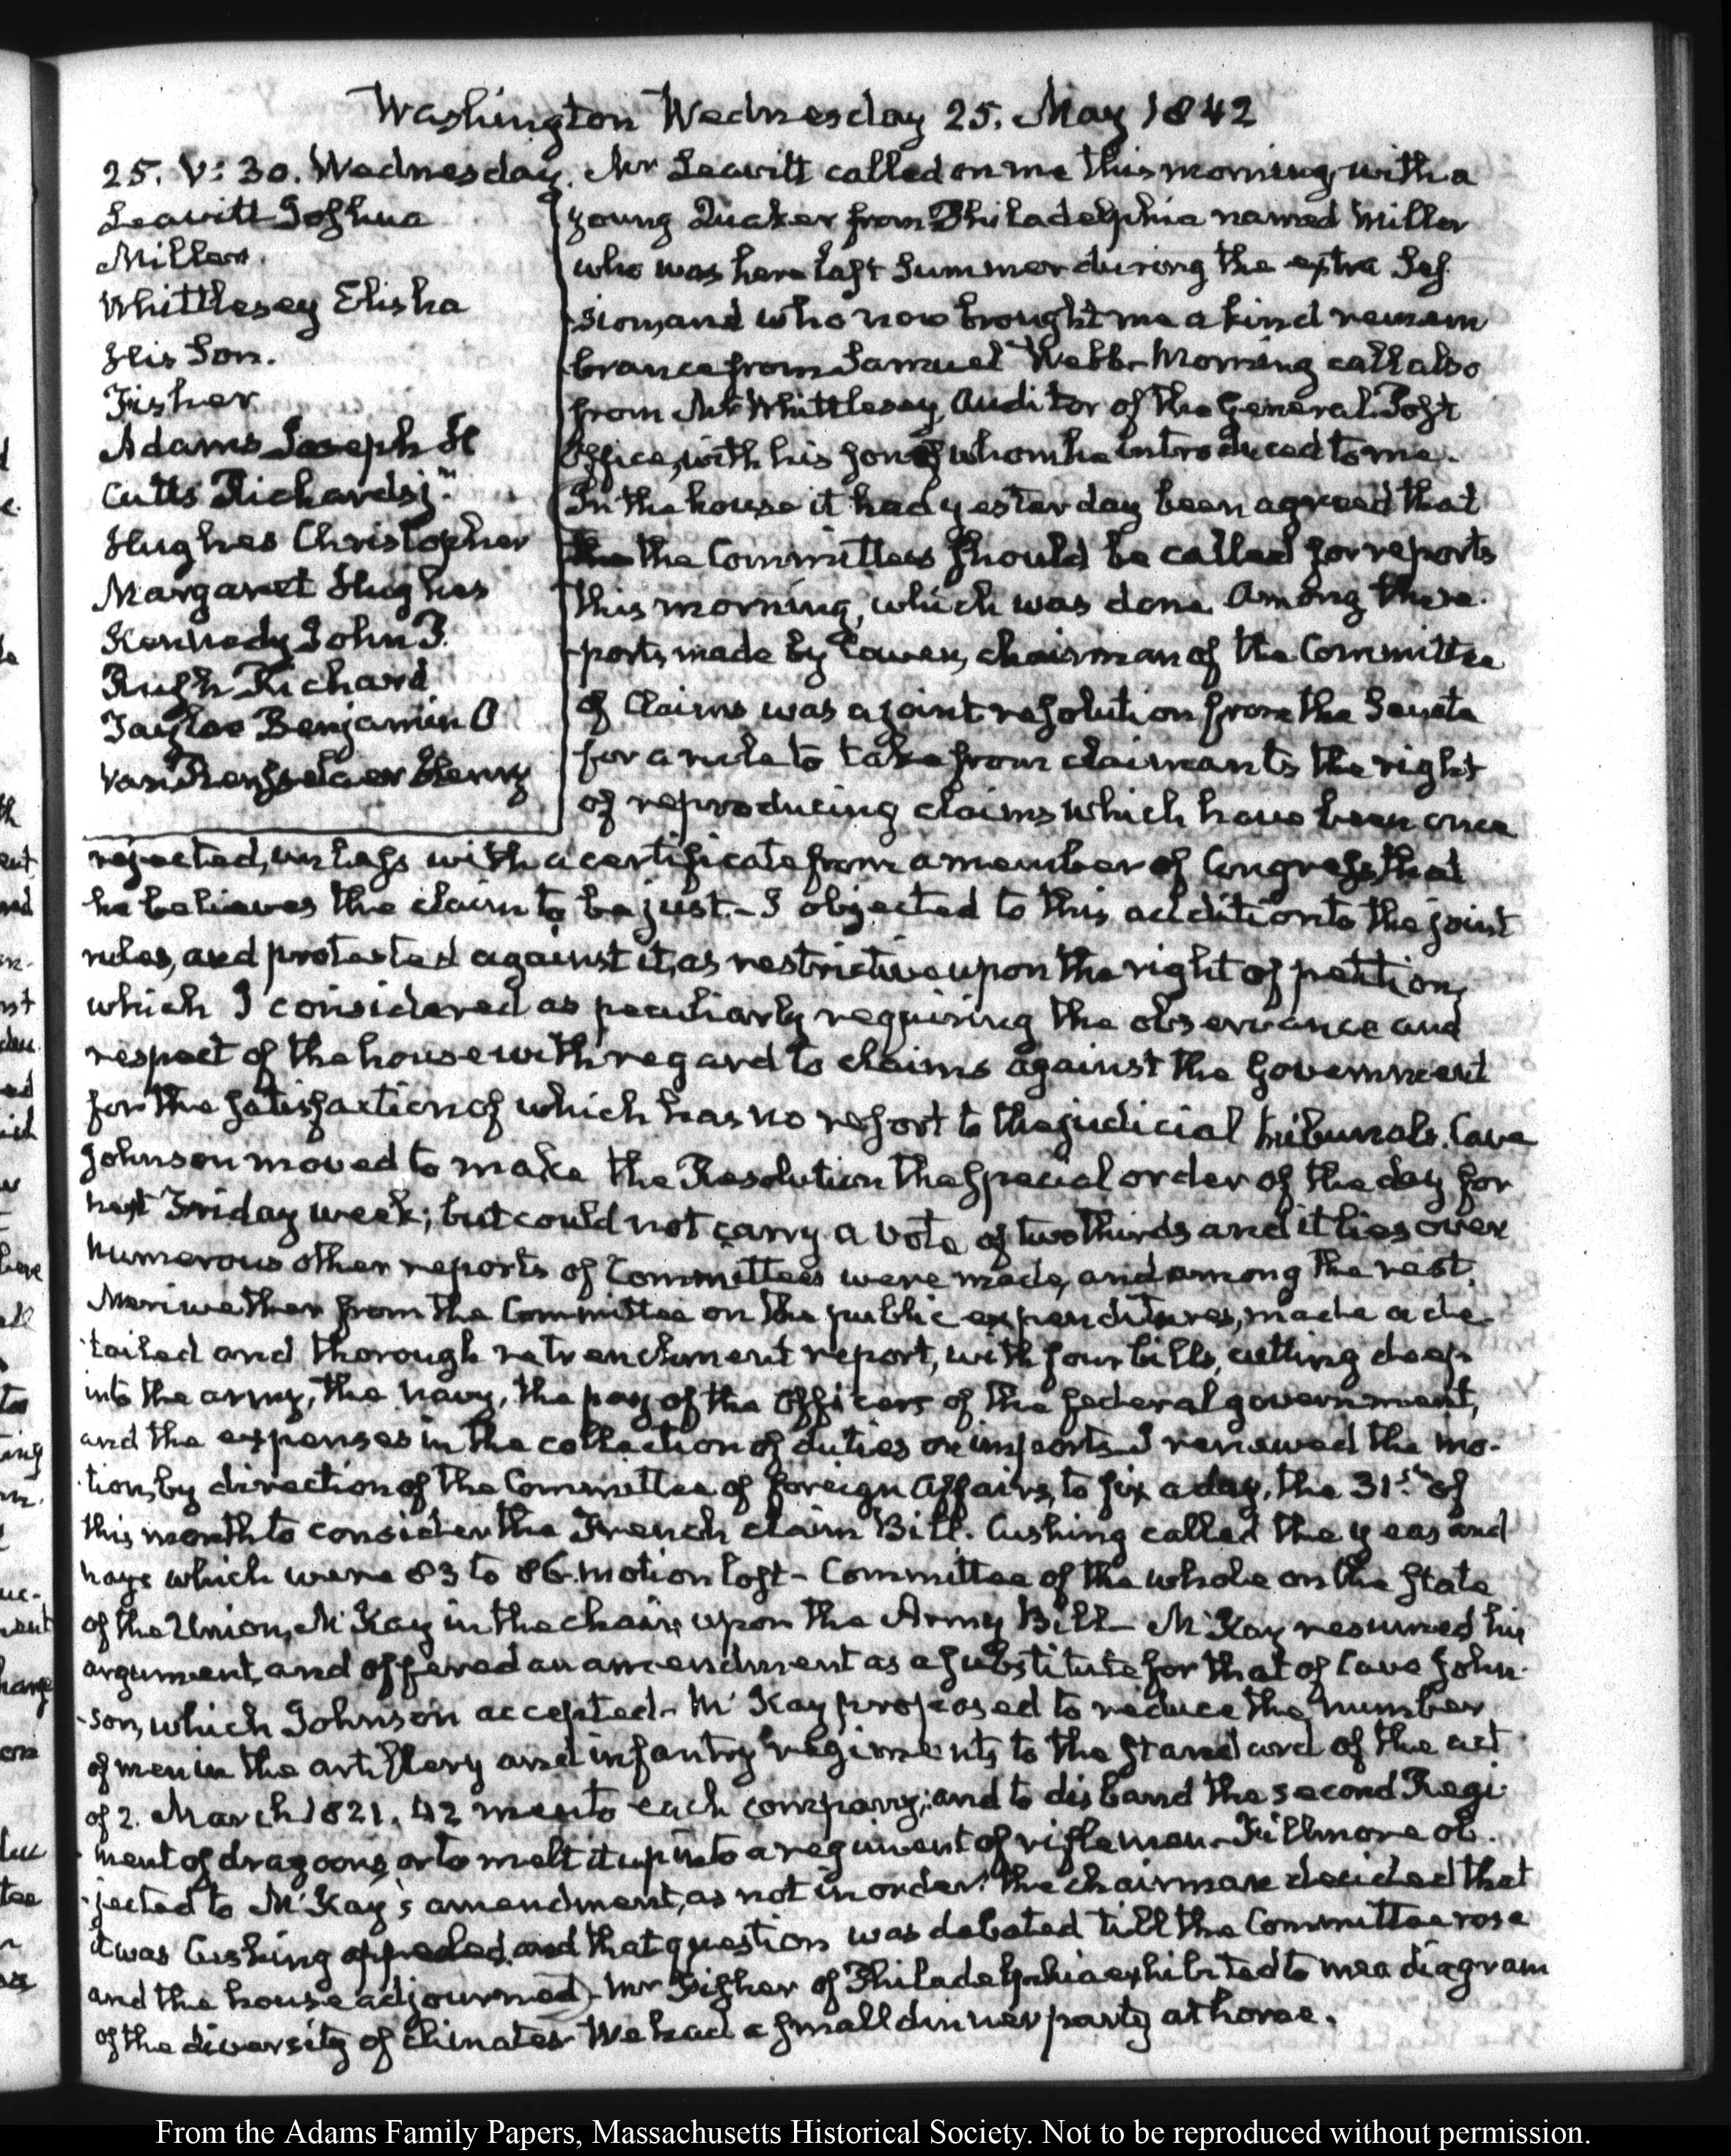 Washington Wednesday 25. May 1842
25. V: 30. Wednesday. Mr Leavitt called on me this morning, with a
Leavitt Joshua
Miller.
Whittlesey Elisha
His Son.
Fisher
Adams Joseph H
Cutts Richard Jr.
Hughes Christopher
Margaret Hughes
Kennedy John P.
Rush Richard
Tayloe Benjamin O
Van Rensselaer Henry
young Quaker from Philadelphia named Miller
who was here last Summer during the extra Ses-
-sion, and who now brought me a kind remem
brance from Samuel Webb. Morning call also
from Mr Whittlesey, Auditor of the General Post
Office, with his son whom he introduced to me.
In the house it had yesterday been agreed that
the the Committees should be called for reports
this morning, which was done. Among the re-
-ports, made by Cowen, chairman of the Committee
of Claims was a joint resolution from the Senate
for a rule to take from claimants the right
of reproducing claims which have been once
rejected, unless with a certificate from a member of Congress that
he believes the claim to be just. - I objected to this addition to the joint
rules, and protested against it, as restrictive upon the right of petition,
which I considered as peculiarly requiring the observance and
respect of the house with regard to claims against the Government
for the satisfaction of which has no resort to the judicial tribunals. Cave
Johnson moved to make the Resolution the special order of the day for
next Friday week; but could not carry a vote of two thirds and it lies over
Numerous other reports of Committees were made, and among the rest.
Meriwether from the Committee on the public expenditures, made a de-
-tailed and thorough retrenchment report, with four bills, cutting deep
into the army, the navy, the pay of the officers of the federal government,
and the expenses in the collection of duties on imports. I renewed the mo-
-tion, by direction of the Committee of foreign Affairs, to fix a day, the 31st of
this month to consider the French claim Bill. Cushing called the yeas and
nays which were 83 to 86. motion lost - Committee of the whole on the state
of the Union, McKay in the chair, upon the Army Bill - McKay resumed his
argument, and offered an amendment as a substitute for that of Cave John-
-son, which Johnson accepted - McKay proposed to reduce the number
of men in the artillery and infantry regiments, to the standard of the act
of 2. March 1821. 42 men to each company; and to disband the second Regi-
-ment of dragoons, or to melt it up into a regiment of riflemen. Fillmore ob-
-jected to McKay's amendment, as not in order. The chairman decided that
it was Cushing appealed, and that question was debated till the Committee rose
and the house adjourned - Mr Fisher of Philadelphia exhibited to me a diagram
of the diversity of climates. We had a small dinner party at home.
From the Adams Family Papers, Massachusetts Historical Society. Not to be reproduced without permission.